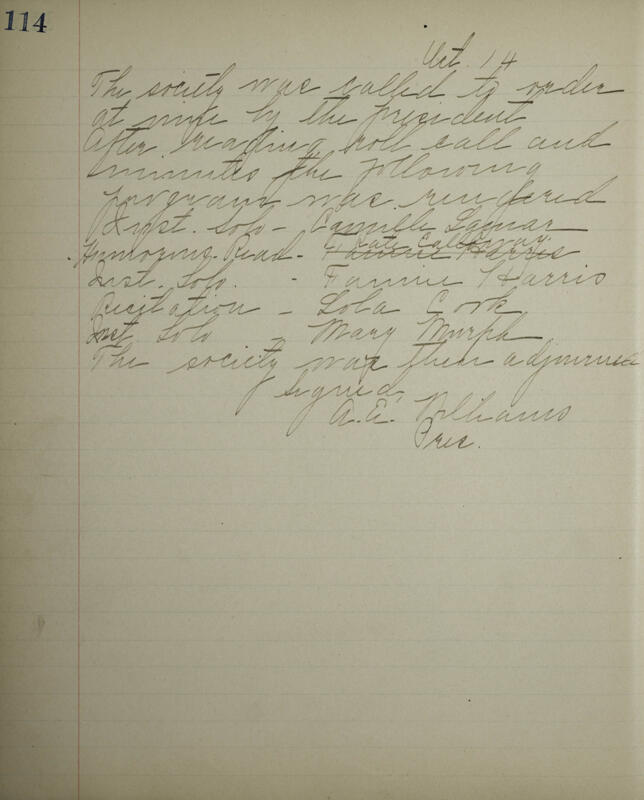 114
Oct. 14
The society was called to order
at nine by the president
After reading roll call and
minutes the following
program was rendered
Inst. Solo - Camille Lamar
Humorous Read. - Fannie Harris Kate Callaway
Inst. Solo. - Fannie Harris
Recitation - Lola Cook
Inst Solo - Mary Murph
The society was then adjourned
Signed,
A.E. Williams
Pres.